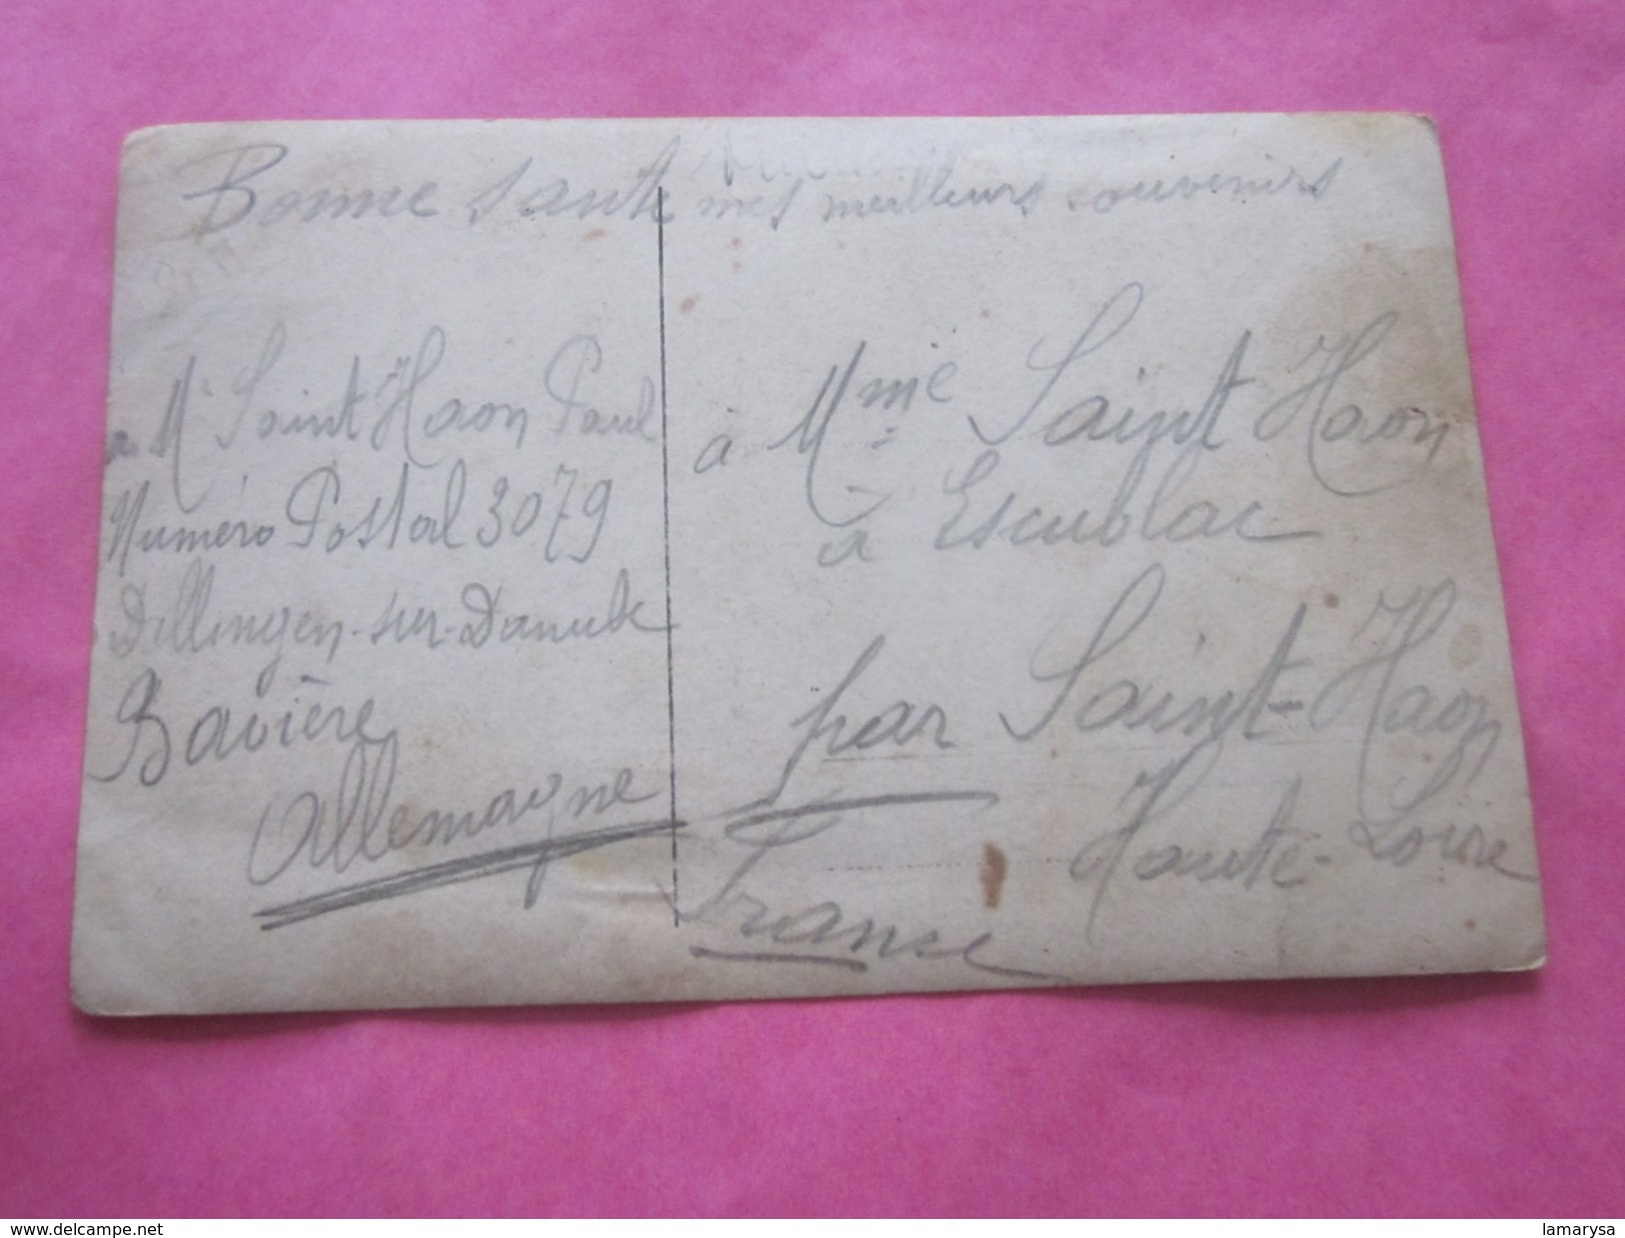 Bonne santé mes meilleurs souvenirs
à Mr Saint Haon Paul
Numéro Postal 3079
Dillingen-sur-Danube
Bavière
Allemagne
à Mme Saint Haon
à Escublac
par Saint-Haon
Haute-Loire
France
www.delcampe.net
lamarysa